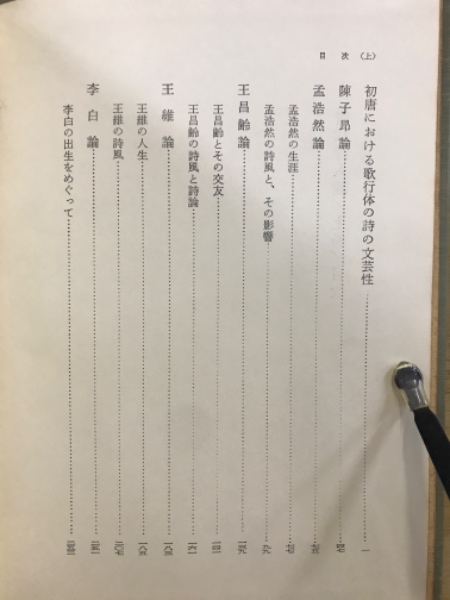 目次（上）
初唐における歌行体の詩の文芸性 一
陳子昻論
孟浩然論
孟浩然の生涯
孟浩然の詩風と、その影響 九九
王昌齢論 一三九
王昌齢とその交友 一四一
王昌齢の詩風と詩論 一六一
王維論 一八三
王維の人生 一八五
王維の詩風 二〇七
李白論
李白の出生をめぐって